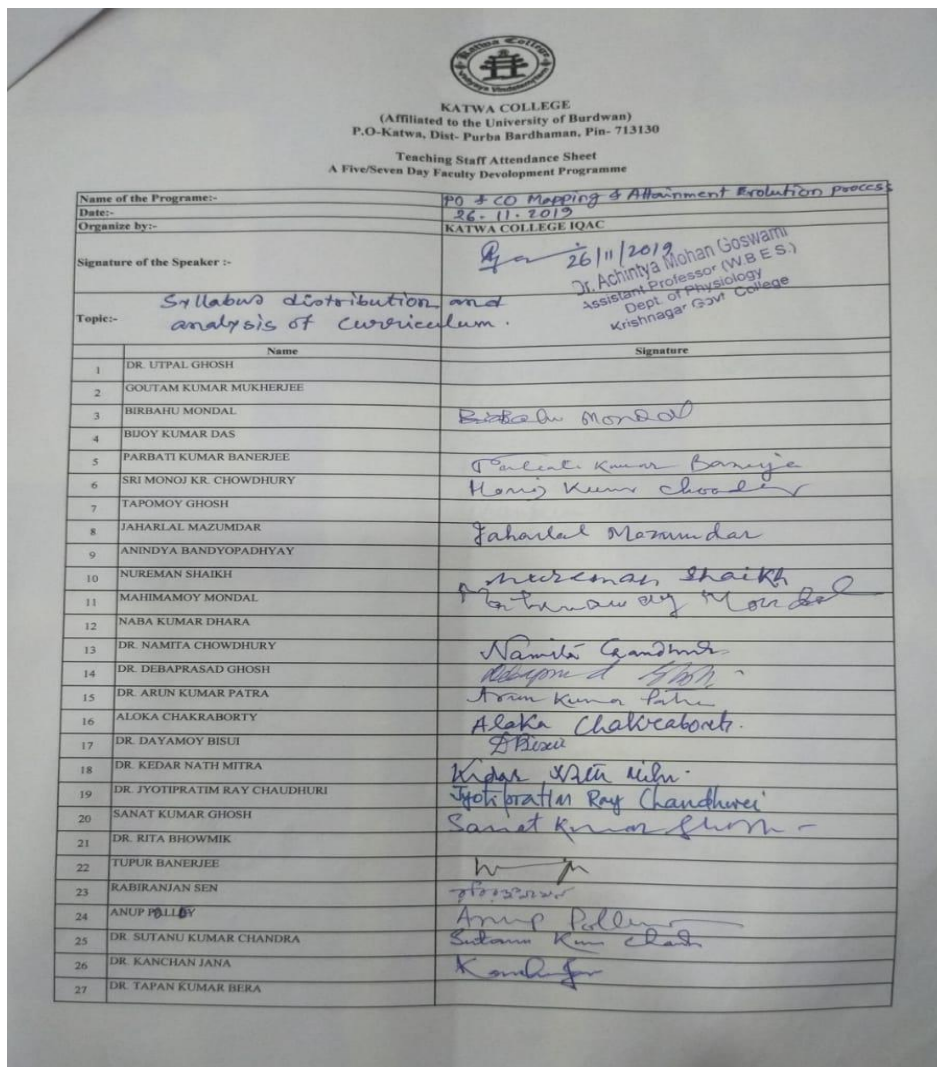 Katwa College
KATWA COLLEGE
(Affiliated to the University of Burdwan)
P.O-Katwa, Dist- Purba Bardhaman, Pin- 713130
Teaching Staff Attendance Sheet
A Five/Seven Day Faculty Devolopment Programme
Name of the Programe:- PO & CO Mapping & Attainment Evolution process
Date:- 26-11-2019
Organize by:- KATWA COLLEGE IQAC
Signature of the Speaker :- 26/11/2019
Dr. Achintya Mohan Goswami
Assistant Professor (W.B E S.)
Dept. of Physiology
Krishnagar Govt College
Topic:- Syllabus distribution and
analysis of curriculum.
Name Signature
1 DR. UTPAL GHOSH
2 GOUTAM KUMAR MUKHERJEE
3 BIRBAHU MONDAL Birbahu Mondal
4 BIJOY KUMAR DAS
5 PARBATI KUMAR BANERJEE Parbati Kumar Banerje
6 SRI MONOJ KR. CHOWDHURY Monoj Kumar
7 TAPOMOY GHOSH
8 JAHARLAL MAZUMDAR Jaharlal Mazumdar
9 ANINDYA BANDYOPADHYAY
10 NUREMAN SHAIKH Nureman Shaikh
11 MAHIMAMOY MONDAL Mondal
12 NABA KUMAR DHARA
13 DR. NAMITA CHOWDHURY Namita
14 DR. DEBAPRASAD GHOSH
15 DR. ARUN KUMAR PATRA Arun Kumar Patra
16 ALOKA CHAKRABORTY Aloka Chakraborty.
17 DR. DAYAMOY BISUI DBisui
18 DR. KEDAR NATH MITRA Kedar Nath
19 DR. JYOTIPRATIM RAY CHAUDHURI Jyotipratim Ray Chaudhuri
20 SANAT KUMAR GHOSH Sanat Kumar Ghosh
21 DR. RITA BHOWMIK
22 TUPUR BANERJEE
23 RABIRANJAN SEN
24 ANUP POLLEY Anup Polley
25 DR. SUTANU KUMAR CHANDRA Sutanu Kum
26 DR. KANCHAN JANA
27 DR. TAPAN KUMAR BERA